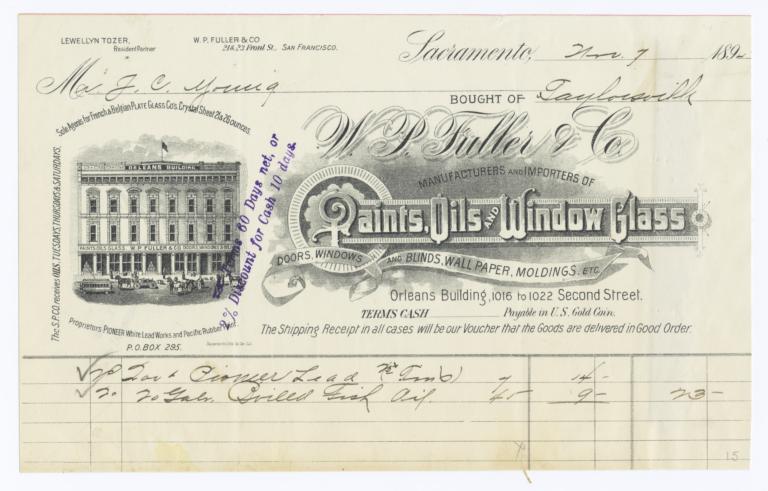 LEWELLYN TOZER,
Resident Partner
W. P. FULLER & CO
21 & 23 Front St., SAN FRANCISCO.
Sacramento, Nov. 7 189
Mr J. C. Young
BOUGHT OF Taylorsville
W. P. Fuller & Co.
MANUFACTURERS AND IMPORTERS OF
Paints, Oils AND Window Glass
DOORS, WINDOWS AND BLINDS, WALL PAPER, MOLDINGS, ETC.
Orleans Building, 1016 to 1022 Second Street.
TERMS CASH Payable in U.S. Gold Coin.
The Shipping Receipt in all cases will be our Voucher that the Goods are delivered in Good Order.
Sole Agents for French & Belgian PLATE GLASS Co's. Crystal Sheet 21 & 26 ounces.
The S.P.CO. receives TUESDAYS, THURSDAYS & SATURDAYS.
ORLEANS BUILDING
PAINTS OILS GLASS W. P. FULLER & CO. DOORS WINDOWS
Proprietors PIONEER White Lead Works and Pacific Rubber Paint.
P.O. BOX 295.
60 Days net, or
2% Discount for Cash 10 days.
Pioneer Lead 7 14-
20 Gals. Boiled Fish Oil. 45 9- 23-
15